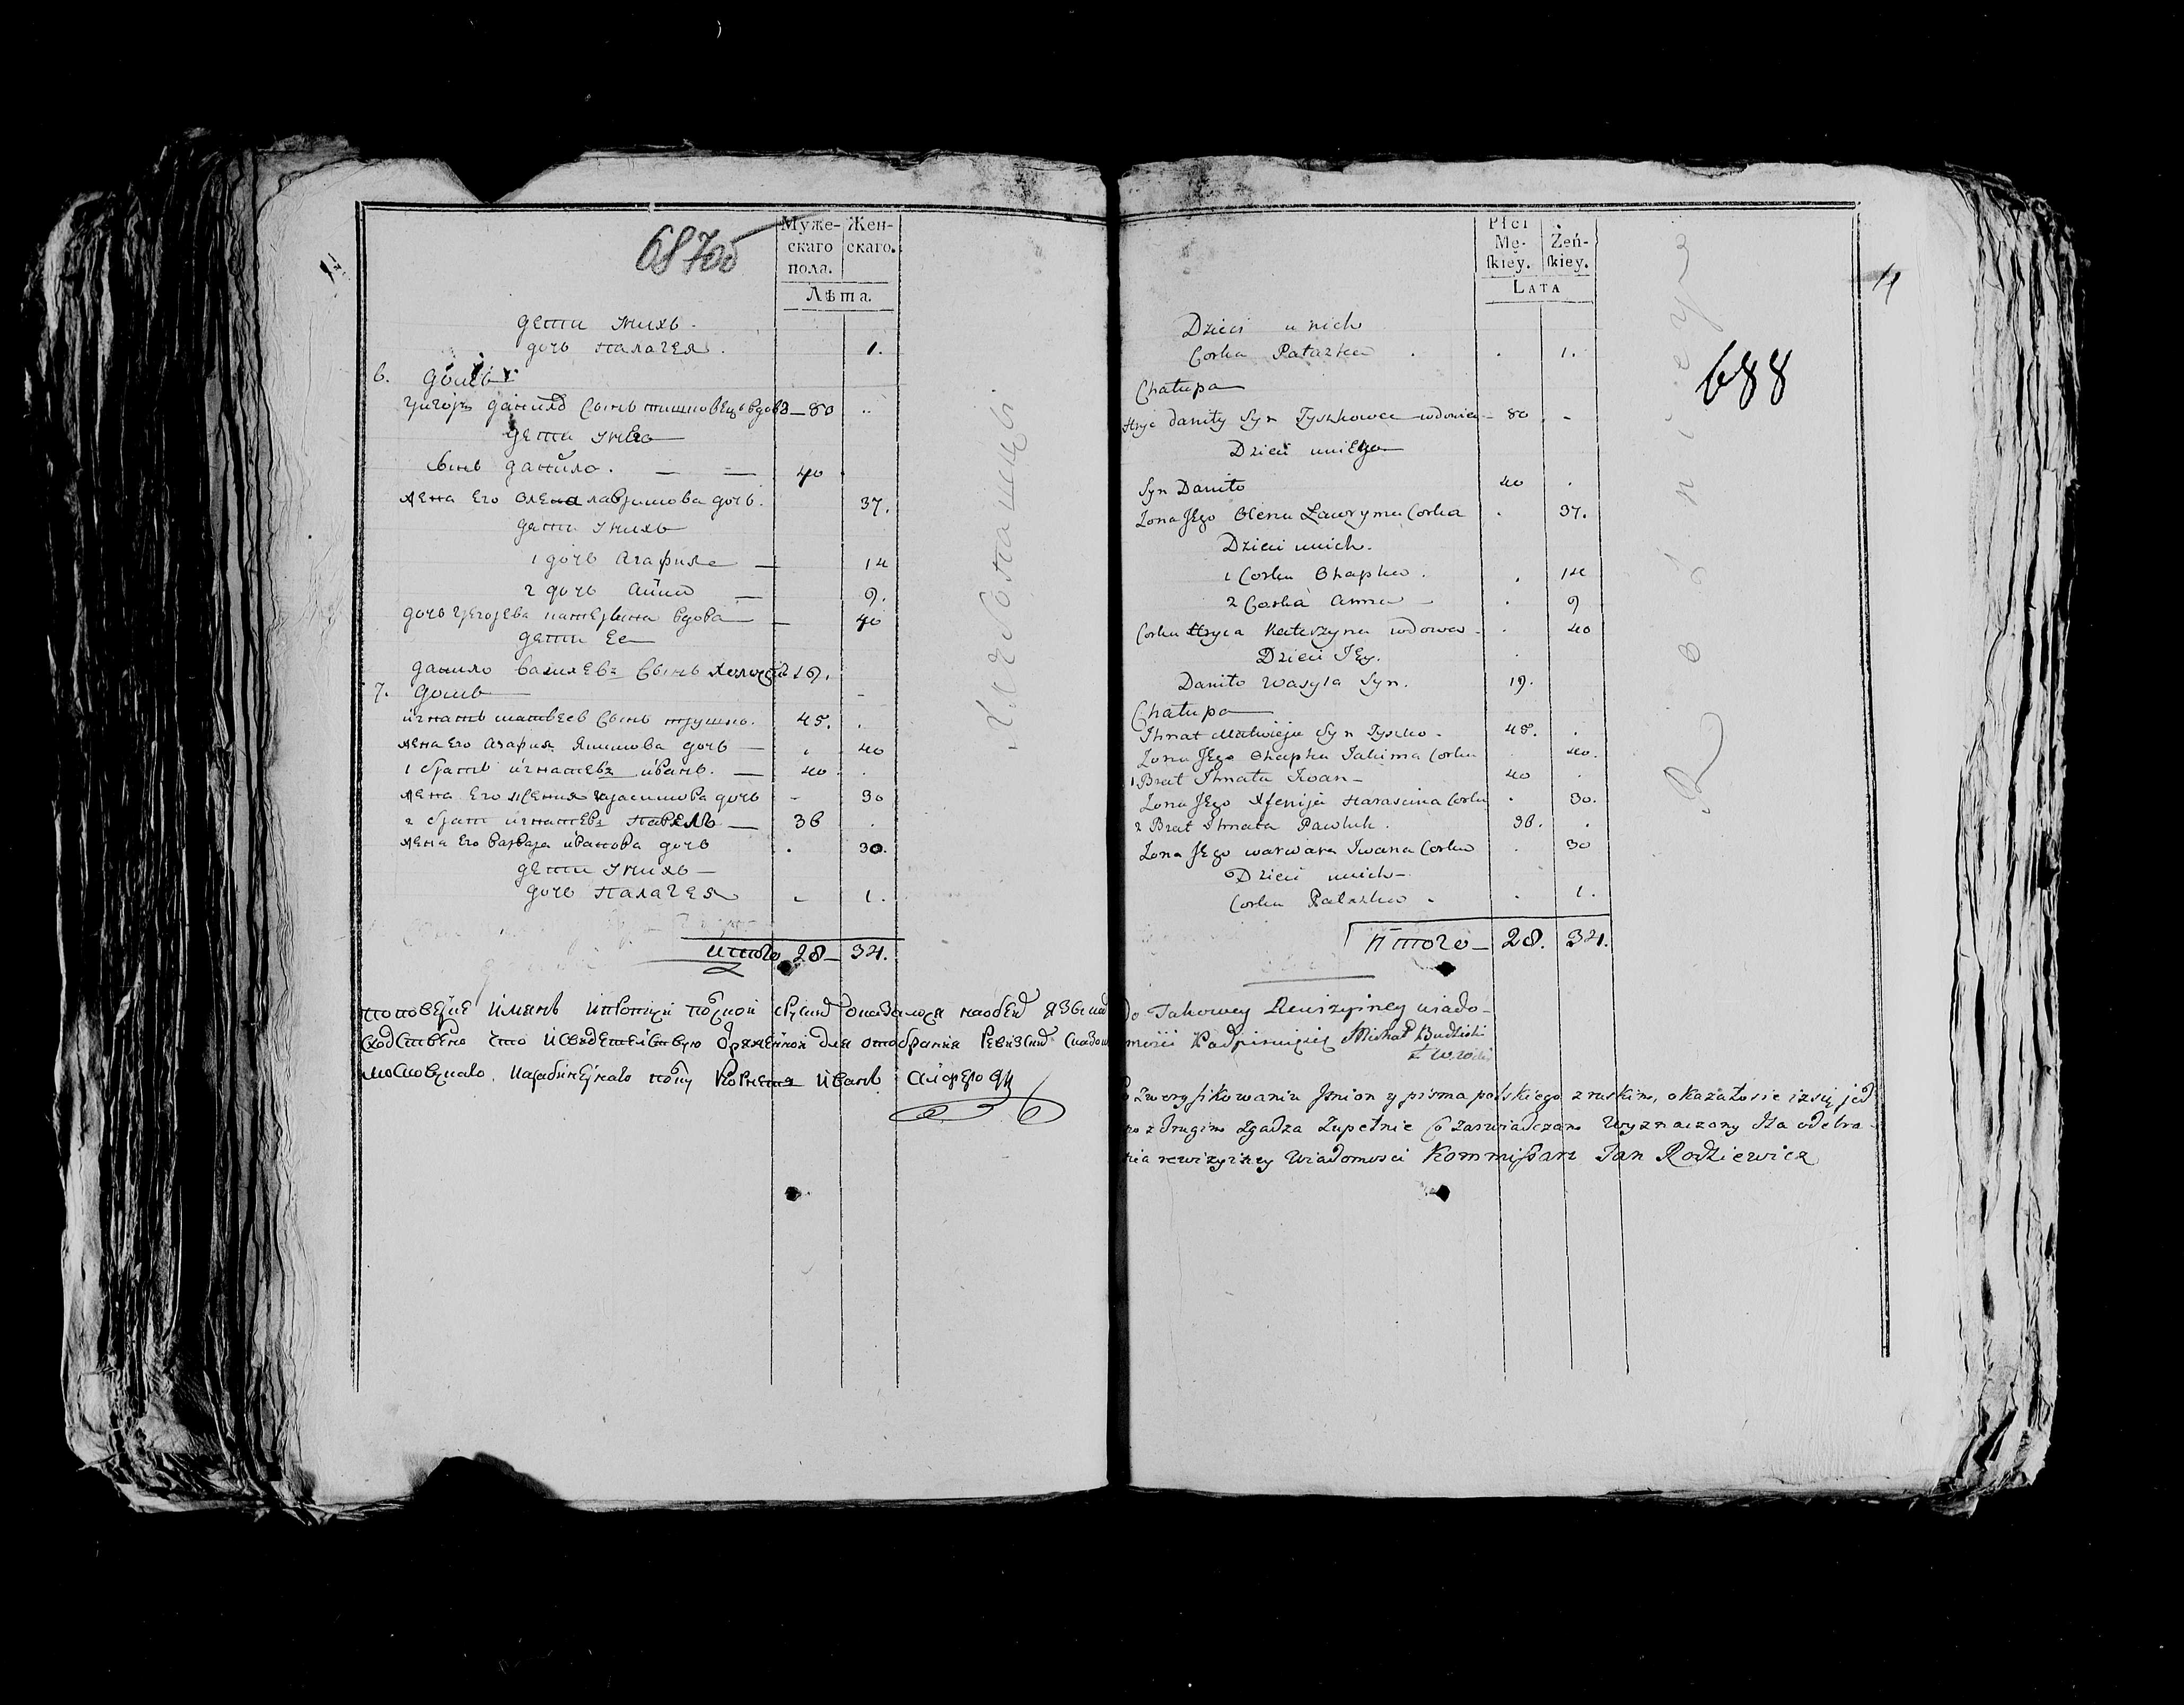 687об
Муже-
скаго
пола.
Жен-
скаго.
Лѣта.
дети унихъ.
дочь палагея. 1.
6. домъ
григорь данила сынъ тишковецъ вдовъ — 80 ..
дети унево
сынъ данило. — — 40
жена его олена лавримова дочь. 37.
дети унихъ
1 дочь агафия — 14
2 дочь анна — 9.
дочь грегорева катерына вдова — 40
дети ее
данило василевъ сынъ холостй 19.
7. домъ
игнатъ матвеев сынъ 45. .
жена его агафия якимова дочь — . 40
1 братъ игнатевъ иванъ. — 40 .
жена его ксения гарасимова дочь - 30
2 братъ игнатевъ павелъ — 36 .
жена его варвара иванова дочь . 30.
дети унихъ —
дочь палагея - 1.
итого 28 — 34.
хлебопашцы
поповерке имянъ
сходствено что исвидетелствую для отобрания
иванъ
Płci
Mę-
ſkiey.
Żeń-
ſkiey.
Lata
11
688
Dzieci u nich
Corka Palazka . . 1.
Chałupa
Hryc Daniły Syn Tyszkowec wdowiec — 80 . -
Dzieci uniego
Syn Daniło 40 .
Zona Jego Olena Ławryma Corka . 37.
Dzieci unich.
1 Corka Ohapka . . 14
2 Corka Anna — . 9
Corka Hryca Katerzyna wdowa . . 40
Dzieci Jey. .
Daniło Wasyla Syn. 19.
Chałupa
Ihnat Matwieja Syn Tyszko. 45. .
Zona Jego Ohapka Jakima Corka 40.
1 Brat Ihnata Iwan — 40 .
Zona Jego Xfenija Harasima Corka . 30.
2 Brat Ihnata Pawluk. 36. .
Zona Jego Warwara Iwana Corka . 30
Dzieci unich —
Corka Palazka . . 1.
Итого — 28. 34.
Rolniczy
Do Takowey Rewizyiney wiado-
mości Podpisuięię Michał Budzicki
Po Zweryfikowaniu Jmion y pisma polskiego z ruskim, okazało sie iż się jed
no z drugim Zgadza Zupełnie Co Zaswiadczam Wyznaczony dla odebra
nia rewizyiney Wiadomosci Kommiſsarz Jan Rodziewicz